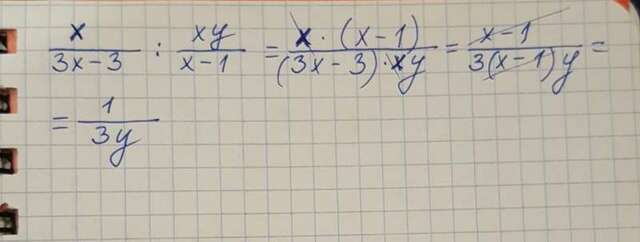 x/(3x-3) : xy/(x-1) = x·(x-1)/((3x-3)·xy) = (x-1)/(3(x-1)y) =
= 1/(3y)